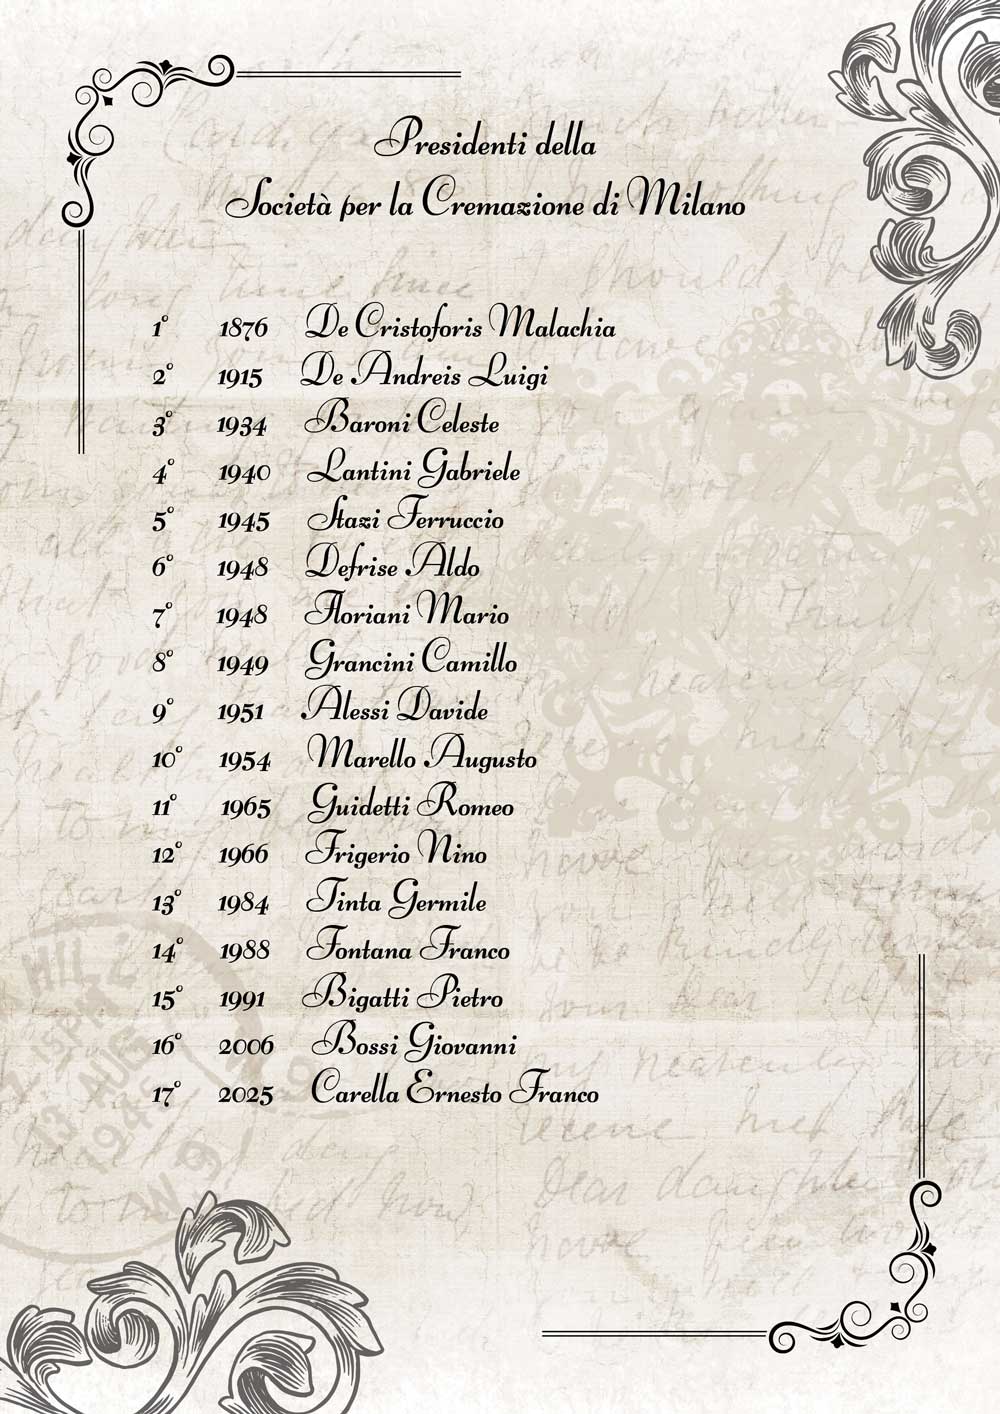 Presidenti della
Società per la Cremazione di Milano
1° 1876 De Cristoforis Malachia
2° 1915 De Andreis Luigi
3° 1934 Baroni Celeste
4° 1940 Lantini Gabriele
5° 1945 Stazi Ferruccio
6° 1948 Defrise Aldo
7° 1948 Floriani Mario
8° 1949 Grancini Camillo
9° 1951 Alessi Davide
10° 1954 Marello Augusto
11° 1965 Guidetti Romeo
12° 1966 Frigerio Nino
13° 1984 Tinta Germile
14° 1988 Fontana Franco
15° 1991 Bigatti Pietro
16° 2006 Bossi Giovanni
17° 2025 Carella Ernesto Franco